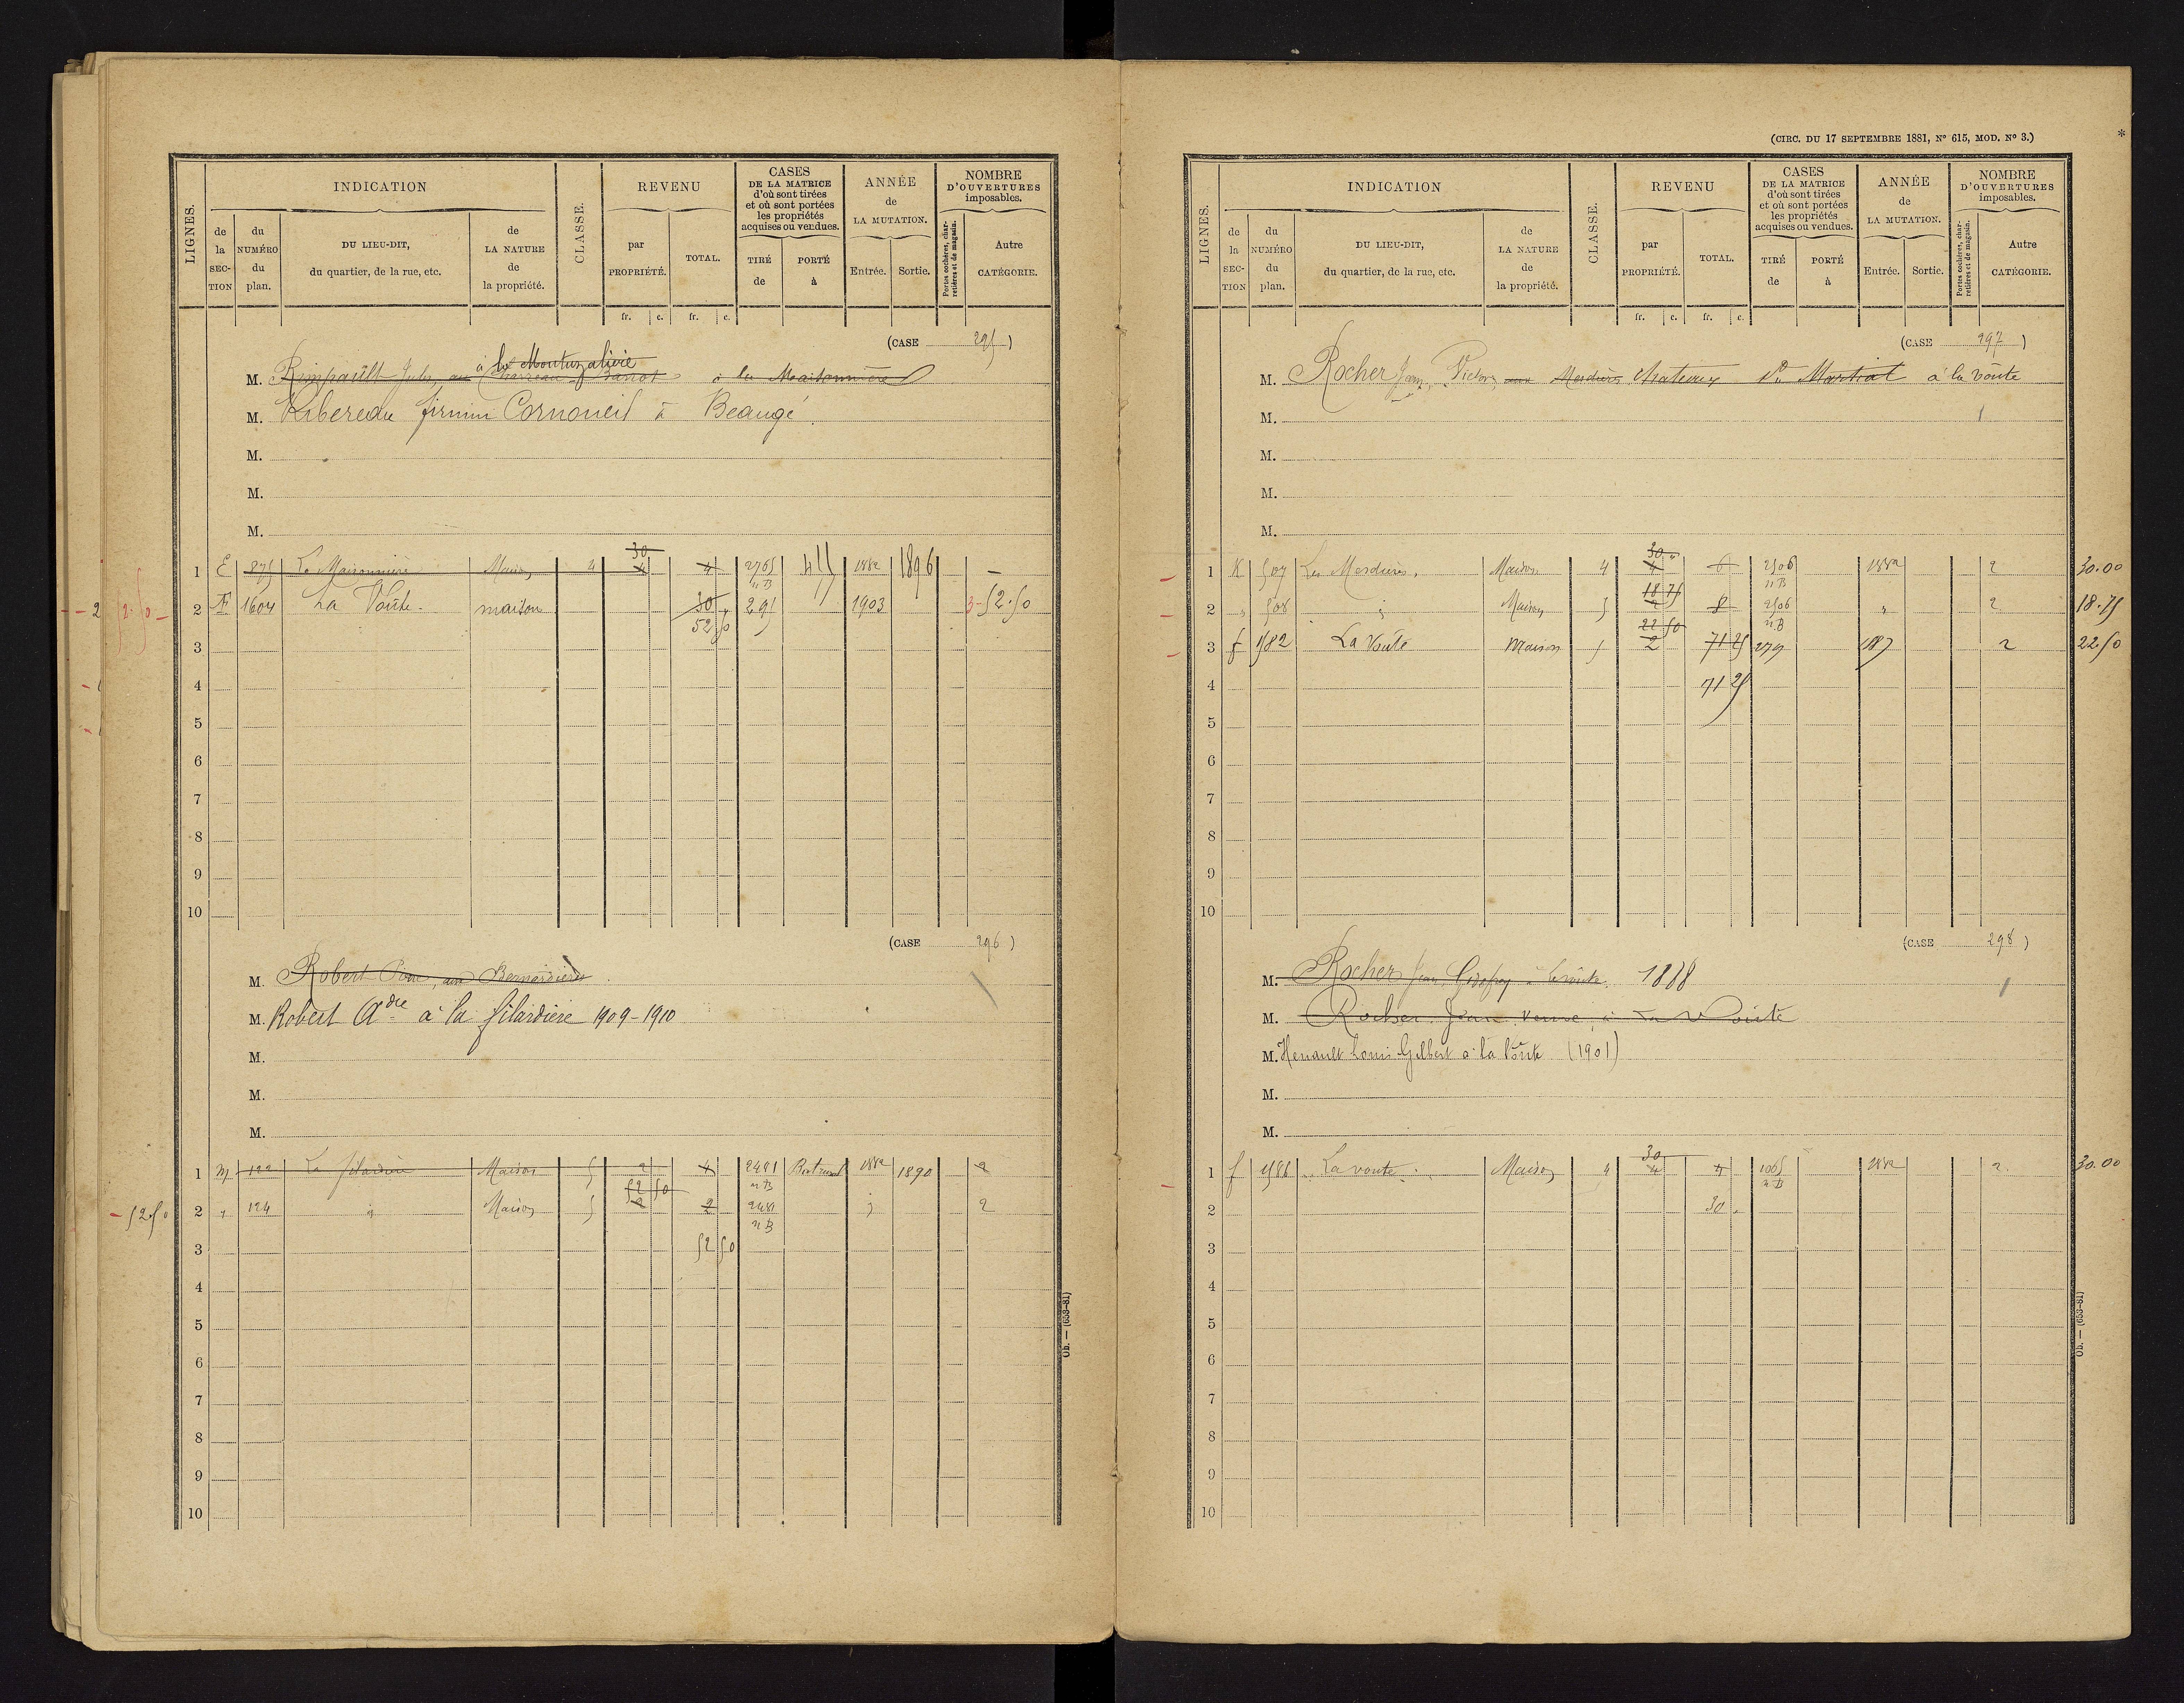 INDICATION
REVENU
CASES DE LA MATRICE d'où sont tirées et où sont portées les propriétés acquises ou vendues.
ANNÉE de LA MUTATION.
NOMBRE D'OUVERTURES imposables.
LIGNES.
de la SECTION
du NUMÉRO du plan.
DU LIEU-DIT, du quartier, de la rue, etc.
de LA NATURE de la propriété.
CLASSE.
par PROPRIÉTÉ.
TOTAL.
TIRÉ de
PORTÉ à
Entrée.
Sortie.
Portes cochères, charretières et de magasin.
Autre CATÉGORIE.
fr. c. fr. c.
(CASE 295)
à la
M. Rimpault Jules à la Maisonnière
M. Ribereau firmin Cornoueil à Beaugé
M.
M.
M.
30
1 E 875 La Maisonnière Maison 4 4 4 2765 nB 411 1882 1896 –
2 F 1604 La Voûte maison 30 291 1903 3 52.50
52 50
3
4
5
6
7
8
9
10
(CASE 296)
M. Robert
M. Robert Adre à la filardière 1909-1910
M.
M.
M.
1 M 122 La filardière Maison 5 2 4 2481 nB 1882 1890 2
52 50
- 52.50 2 " 124 Maison 5 2 2 2481 nB 2
52 50
3
4
5
6
7
8
9
10
Ob. — (653-81)
(CIRC. DU 17 SEPTEMBRE 1881, No 615, MOD. No 3.)
*
INDICATION
REVENU
CASES DE LA MATRICE d'où sont tirées et où sont portées les propriétés acquises ou vendues.
ANNÉE de LA MUTATION.
NOMBRE D'OUVERTURES imposables.
LIGNES.
de la SECTION
du NUMÉRO du plan.
DU LIEU-DIT, du quartier, de la rue, etc.
de LA NATURE de la propriété.
CLASSE.
par PROPRIÉTÉ.
TOTAL.
TIRÉ de
PORTÉ à
Entrée.
Sortie.
Portes cochères, charretières et de magasin.
Autre CATÉGORIE.
fr. c. fr. c.
(CASE 297)
M. Rocher Jean, Victor, Martial à la voûte
M.
M.
M.
M.
30 "
1 K 507 Maison 4 4 6 2506 nB 1882 2 30.00
18 75
2 " 508 Maison 5 2 8 2506 nB " 2 18.75
22 50
3 f 1582 La Voûte maison 5 2 71 25 279 2 22 50
4 71 25
5
6
7
8
9
10
(CASE 298)
M. Rocher Jean 1888
M. Rocher Jean Veuve, à La Voûte
M. Henault Louis Gilbert à la Voûte (1901)
M.
M.
30
1 f 1586 La voûte Maison 4 4 4 1065 nB 1882 2 30.00
2 30
3
4
5
6
7
8
9
10
Ob. — (653-81)